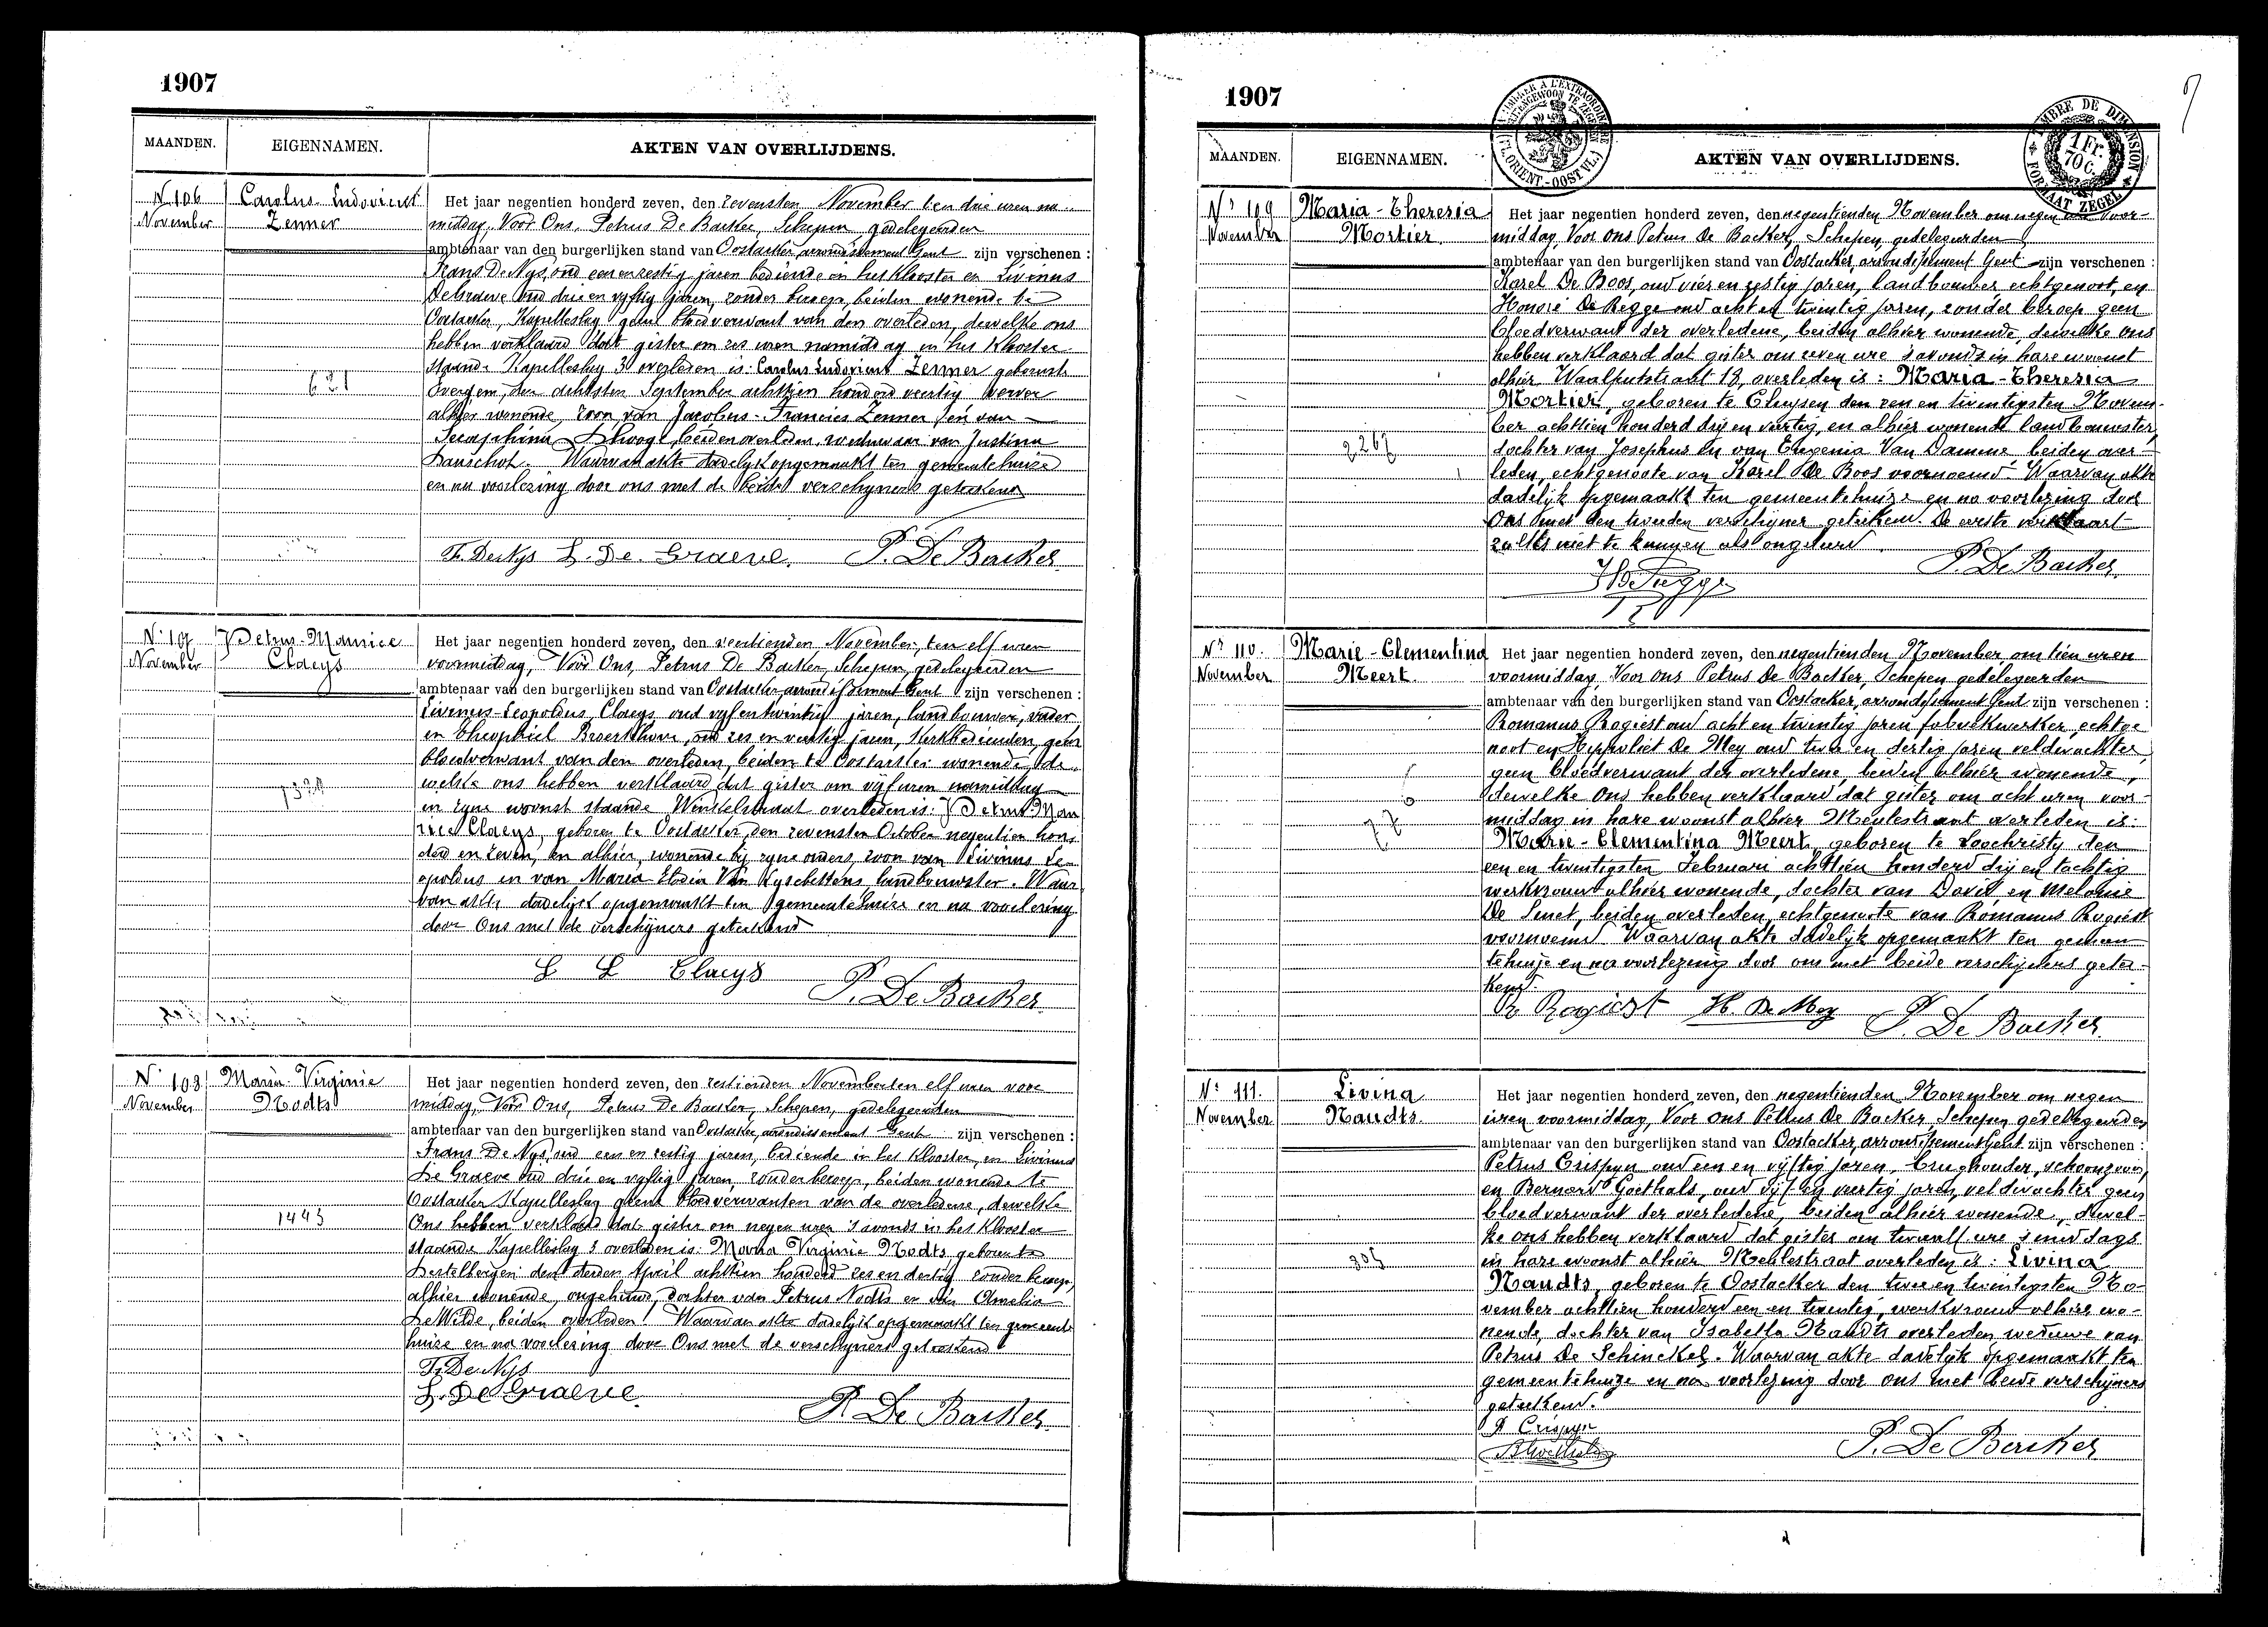 1907
MAANDEN. EIGENNAMEN. AKTEN VAN OVERLIJDENS.
N 106 Carolus Ludovicus
November Zenner
621
Het jaar negentien honderd zeven, den zevensten November ten drie uren na
middag, Voor Ons, Petrus De Backer, Schepen, gedelegeerden
ambtenaar van den burgerlijken stand van Oostacker, arrondissement Gent zijn verschenen :
Frans De Nys, oud een en zestig jaren bediende in het klooster en Livinus
De Graeve oud drie en vyftig jaren, zonder beroep, beiden wonende te
Oostacker, Kapelleslag geene bloedverwant van den overleden, dewelke ons
hebben verklaard dat gister om zes uren namiddag in het Klooster
staande Kapelleslag 3 overleden is: Carolus Ludovicus Zenner geboren te
Evergem, den achtsten September achttien honderd veertig werver
alhier wonende, zoon van Jacobus-Francies Zenner en van
Seraphina Dhooge, beiden overleden, weduwaar van Justina
Danschot. Waarvan akte dadelyk opgemaakt ten gemeentehuize
en na voorlezing door ons met de beide verschyners geteekend
Fr. De Nys L. De Graeve. P. De Backer
N. 107 Petrus-Maurice
November Claeys
Het jaar negentien honderd zeven, den veertienden November, ten elf uren
voormiddag, Voor Ons, Petrus De Backer, Schepen, gedelegeerden
ambtenaar van den burgerlijken stand van Oostacker arrondissement Gent zijn verschenen :
Livinus-Leopoldus Claeys oud vyf en twintig jaren, landbouwer, vader
en Theophiel Broeckhove, oud zes en veertig jaren, kerkbedienden, geen
bloedverwant van den overleden, beiden te Oostacker wonende, de
welke ons hebben verklaard dat gister om vijf uren namiddag
in zyne woonst staande Winkelstraat overleden is: Petrus-Mau
rice Claeys, geboren te Oostacker, den zevensten October negentien hon
derd en zeven, en alhier, wonende bij zyne ouders, zoon van Livinus Le
opoldus en van Maria Elodia Van landbouwster. Waar
van akte dadelijk opgemaakt ten gemeentehuize en na voorlezing
door Ons met de verschijners geteekend
L L Claeys P. De Backer
N. 108 Maria Virginie
November Nodts
1443
Het jaar negentien honderd zeven, den zestienden November ten elf uren voor
middag, Voor Ons, Petrus De Backer, Schepen, gedelegeerden
ambtenaar van den burgerlijken stand van Oostacker, arrondissement Gent zijn verschenen :
Frans De Nys, oud een en zestig jaren, bediende in het Klooster, en Livinus
De Graeve oud drie en vyftig jaren, zonder beroep, beiden wonende te
Oostacker Kapelleslag geene bloedverwanten van de overledene, dewelke
Ons hebben verklaard dat gister om negen uren 's avonds in het Klooster
staande Kapelleslag 3 overleden is: Maria Virginie Nodts geboren te
Destelbergen den derden April achttien honderd zes en dertig zonder beroep,
alhier wonende, ongehuwd, dochter van Petrus Nodts en van Amelia
De Wilde, beiden overleden. Waarvan akte dadelijk opgemaakt ten gemeente
huize en na voorlezing door Ons met de verschyners geteekend
Fr. De Nys
L. De Graeve. P. De Backer
1907
MAANDEN. EIGENNAMEN. AKTEN VAN OVERLIJDENS.
TIMBRE DE DIMENSION
1 Fr. 70 C.
FORMAAT ZEGEL
Nr 109 Maria-Theresia
November Mortier
2267
Het jaar negentien honderd zeven, den negentienden November om negen uren voor-
middag, Voor ons Petrus De Backer, Schepen, gedelegeerden
ambtenaar van den burgerlijken stand van Oostacker, arrondissement Gent zijn verschenen :
Karel De Boos, oud vier en zestig jaren, landbouwer echtgenoot, en
Honoré De Regge oud acht en twintig jaren, zonder beroep geen
bloedverwant der overledene, beiden alhier wonende, dewelke ons
hebben verklaard dat gister om zeven ure 's avonds in hare woonst
alhier Waalputstraat 18, overleden is: Maria-Theresia
Mortier, geboren te Cluysen den zen en twintigsten Novem-
ber achttien honderd drij en veertig, en alhier wonende landbouwster,
dochter van Josephus en van Eugenia Van Damme beiden over-
leden, echtgenoote van Karel De Boos voornoemd. Waarvan akte
dadelijk opgemaakt ten gemeentehuize en na voorlezing door
Ons met den tweeden verschijner geteekend. De eerste verklaart
zulks niet te kunnen als ongeleerd.
H De Regge P. De Backer
Nr 110. Marie-Clementina
November Meert.
Het jaar negentien honderd zeven, den negentienden November, om tien uren
voormiddag, Voor ons Petrus De Backer, Schepen gedelegeerden
ambtenaar van den burgerlijken stand van Oostacker, arrondissement Gent zijn verschenen :
Romanus Rogiest oud acht en twintig jaren fabriekwerker, echtge
noot en Hippoliet De Mey oud twee en dertig jaren veldwachter,
geen bloedverwant der overledene, beiden alhier wonende,
dewelke Ons hebben verklaard dat gister om acht uren voor-
middag in hare woonst alhier Meulestraat overleden is:
Marie-Clementina Meert, geboren te Loochristy den
een en twintigsten Februari achttien honderd drij en tachtig
werkvrouw alhier wonende, dochter van David en Melanie
De Smet, beiden overleden, echtgenoote van Romanus Rogiest
voornoemd. Waarvan akte dadelijk opgemaakt ten gemeen
tehuize en na voorlezing door ons met beide verschijners getee-
kend.
R Rogiest H. De Mey P. De Backer
Nr 111. Livina
November Naudts.
305
Het jaar negentien honderd zeven, den negentienden November om negen
uren voormiddag, Voor ons Petrus De Backer Schepen gedelegeerden
ambtenaar van den burgerlijken stand van Oostacker, arrondissement Gent zijn verschenen :
Petrus Crispyn oud een en vijftig jaren, brughouder, schoonzoon,
en Bernard Goethals, oud vijf en veertig jaren, veldwachter geen
bloedverwant der overledene, beiden alhier wonende, dewel-
ke ons hebben verklaard dat gister om twaalf ure 's middags
in hare woonst alhier Meulestraat overleden is: Livina
Naudts, geboren te Oostacker den twee en twintigsten No-
vember achttien honderd een en twintig, werkvrouw alhier wo-
nende, dochter van Isabella Naudts overleden weduwe van
Petrus De Schinckel. Waarvan akte dadelijk opgemaakt ten
gemeentehuize en na voorlezing door ons met beide verschijners
geteekend.
P Crispyn
B Goethals P. De Backer